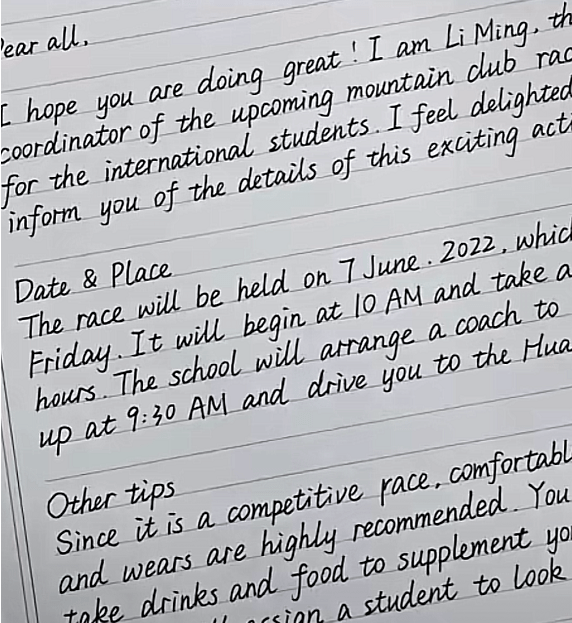 ear all,
I hope you are doing great! I am Li Ming, th
coordinator of the upcoming mountain club rac
for the international students. I feel delighted
inform you of the details of this exciting acti
Date & Place
The race will be held on 7 June. 2022, which
Friday. It will begin at 10 AM and take a
hours. The school will arrange a coach to
up at 9:30 AM and drive you to the Hua
Other tips
Since it is a competitive race, comfortabl
and wears are highly recommended. You
take drinks and food to supplement yo
a student to look